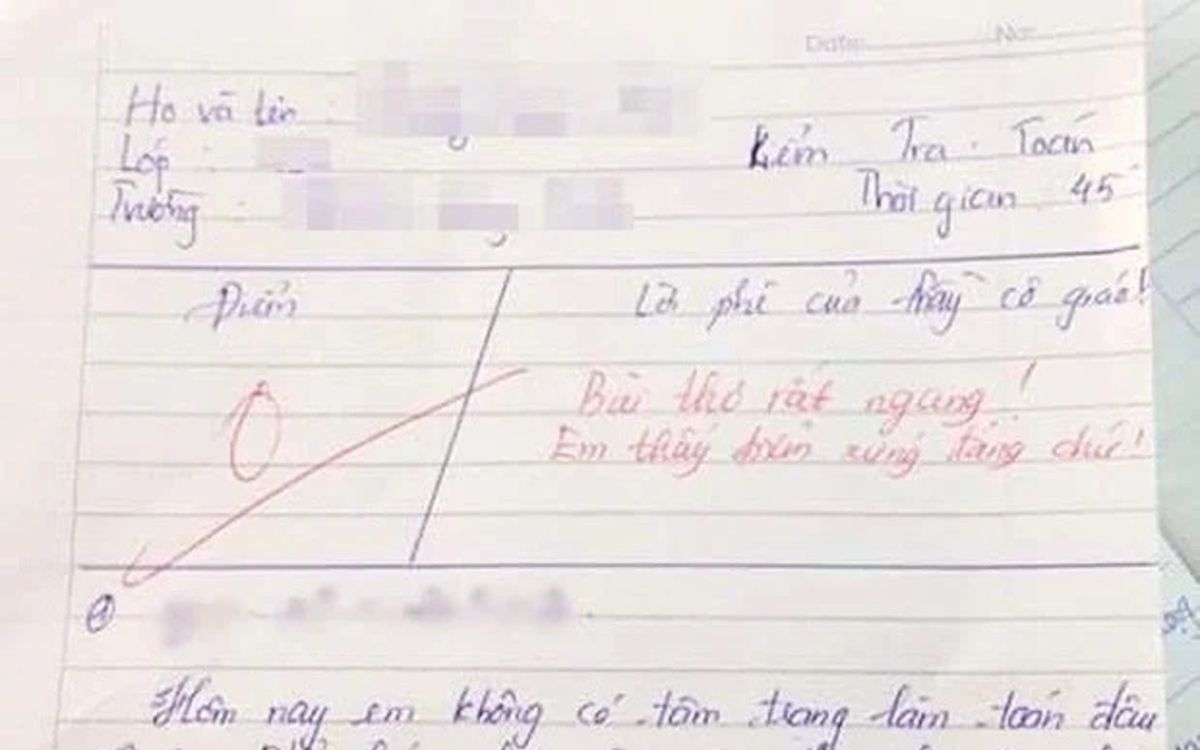 Date: No:
Họ và tên :
Lớp :
Trường :
Kiểm Tra Toán
Thời gian 45'
Điểm
Lời phê của thầy cô giáo!
0
Bài thơ rất ngang!
Em thấy điểm xứng đáng chứ!
Hôm nay em không có tâm trạng làm toán đâu